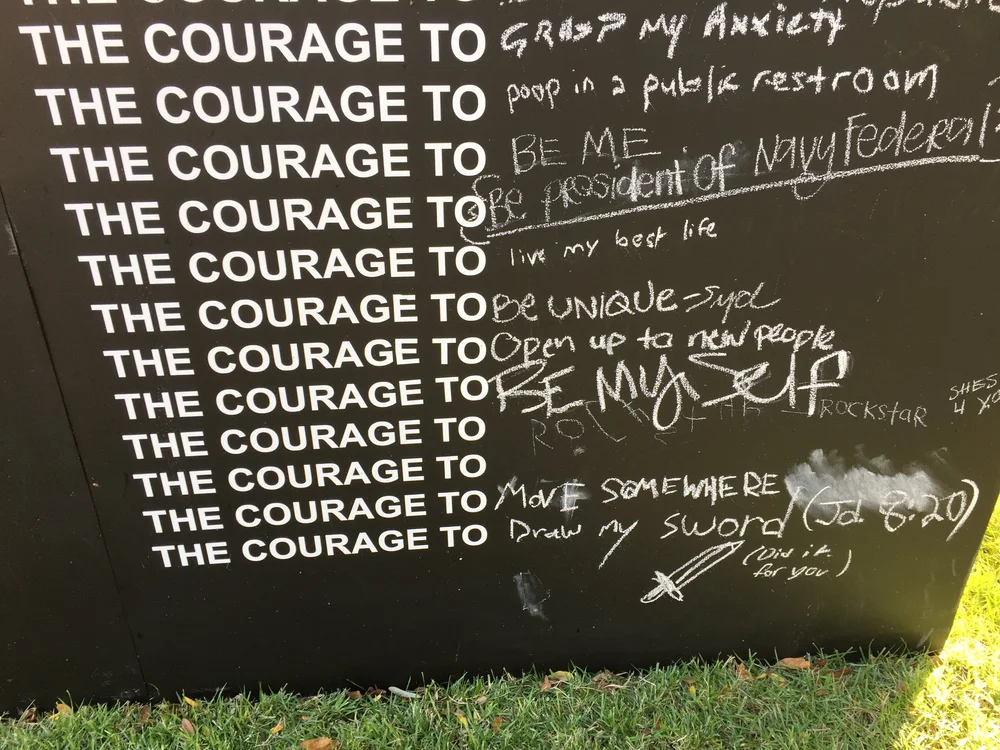 THE COURAGE TO
THE COURAGE TO GRASP My Anxiety
THE COURAGE TO poop in a public restroom
THE COURAGE TO BE ME
THE COURAGE TO Be president Of Navy Federal
THE COURAGE TO live my best life
THE COURAGE TO Be UNIQUE - Syd
THE COURAGE TO Open up to new people
THE COURAGE TO BE MySelf
THE COURAGE TO ROCKstaR
SHES
4
THE COURAGE TO
THE COURAGE TO MOVE SOMEWHERE
THE COURAGE TO Draw my sword (Jd. 8:20)
(Did it
for you)